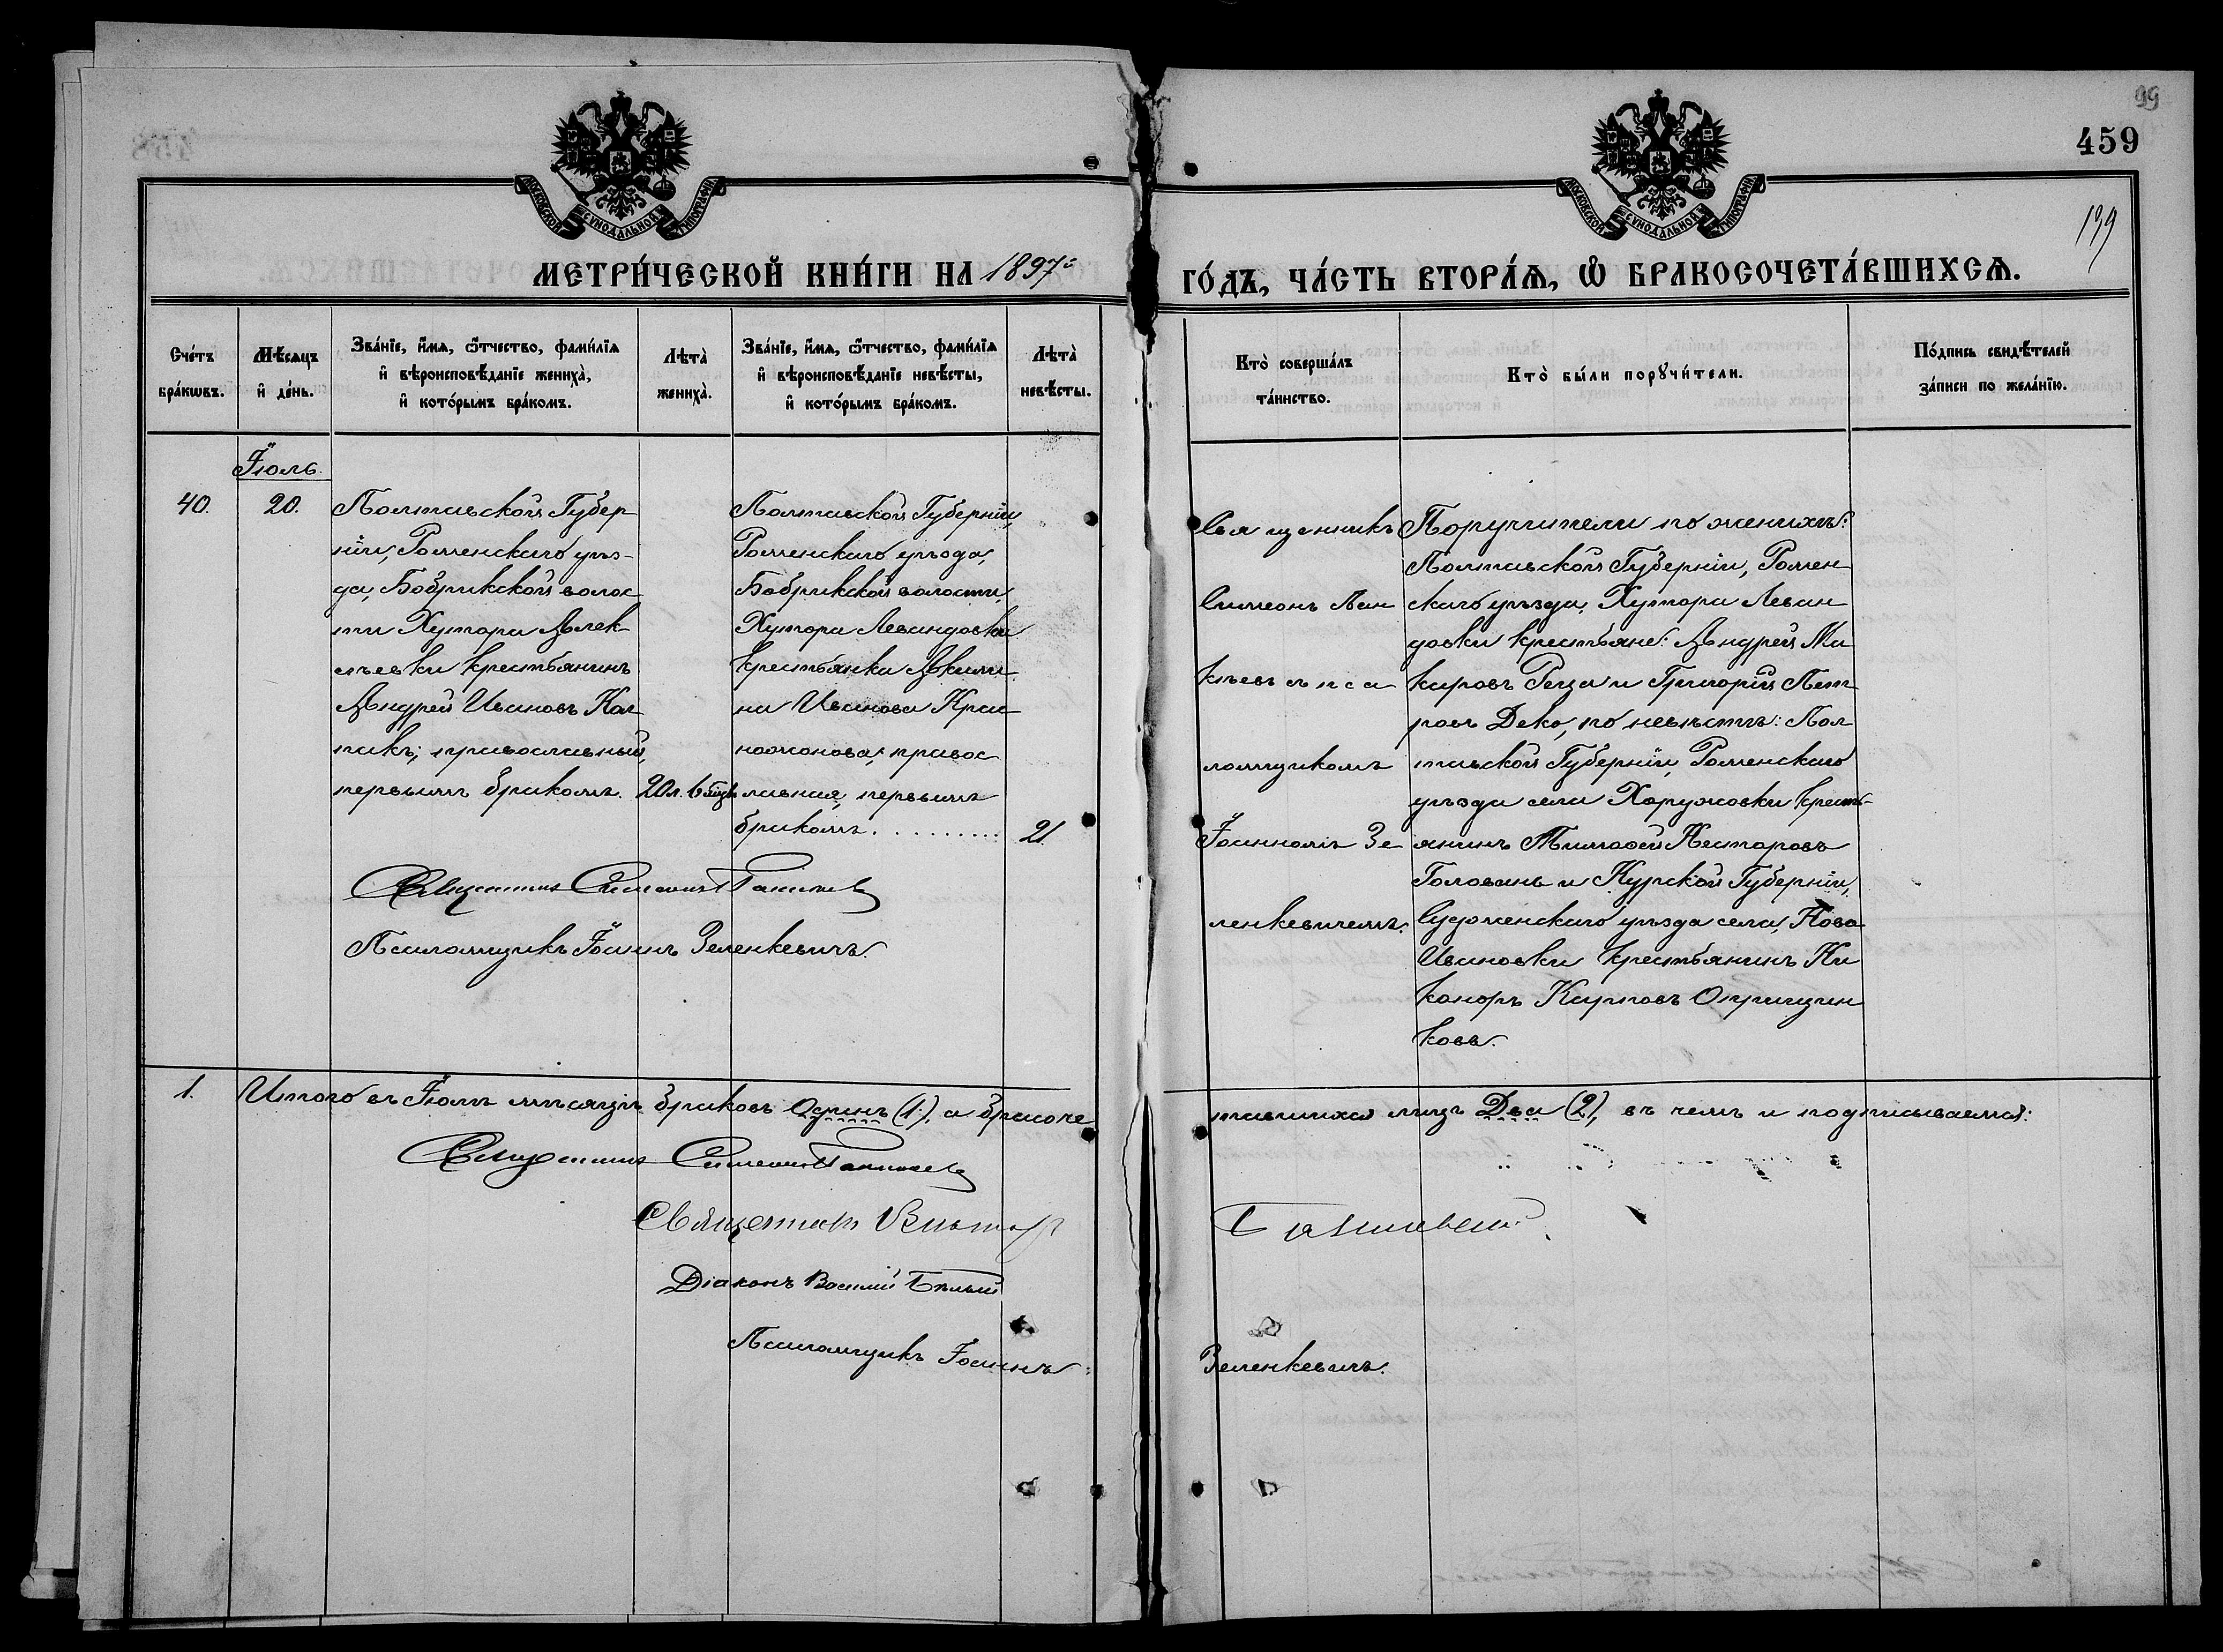 99
459
199
МОСКОВСКОЙ СУНОДАЛЬНОЙ ТИПОГРАФІИ
МОСКОВСКОЙ СУНОДАЛЬНОЙ ТИПОГРАФІИ
МЕТРИ́ЧЕСКОЙ КНИ́ГИ НА 1897й
ГО́ДЪ, ЧА́СТЬ ВТОРА́Ѧ, Ѡ҆ БРАКОСОЧЕТА́ВШИХСѦ.
Сче́тъ бра́кѡвъ.
Мѣ́сяцъ и҆ де́нь.
Зва́нїе, и҆́мѧ, ѻ҆́тчество, фами́лїѧ и҆ вѣроисповѣ́данїе жениха̀, и҆ кото́рымъ бра́комъ.
Лѣта̀ жениха̀.
Зва́нїе, и҆́мѧ, ѻ҆́тчество, фами́лїѧ и҆ вѣроисповѣ́данїе невѣ́сты, и҆ кото́рымъ бра́комъ.
Лѣта̀ невѣ́сты.
Кто̀ соверша́лъ та́инство.
Кто̀ бы́ли порꙋчи́тели.
По́дпись свидѣ́телей за́писи по жела́нїю.
Іюль.
40.
20.
Полтавской Губер
ніи, Роменскаго уѣз-
да, Бобрикской волос
ти Хутора Алек
сѣевки крестьянинъ
Андрей Ивановъ Кол
пакъ; православный,
первымъ бракомъ.
20л. 6 мѣц.
Полтавской Губерніи,
Роменскаго уѣзда,
Бобрикской волости,
Хутора Левандовки
крестьянка Акили
на Иванова Крас
ножонова; правос
лавная, первымъ
бракомъ.........
21.
Священникъ
Симеонъ Пан
кѣевъ съ пса
ломщикомъ
Іоанномъ Зе
ленкевичемъ.
Поручители по женихѣ:
Полтавской Губерніи, Ромен
скаго уѣзда, Хутора Леван
довки крестьяне: Андрей Ма
каровъ Реза и Григорій Пет
ровъ Деко, по невѣстѣ: Пол
тавской Губерніи, Роменскаго
уѣзда села Хоружовки крест-
янинъ Тимофей Несторовъ
Головань и Курской Губерніи,
Судженскаго уѣзда села, Ново
Ивановки крестьянинъ Ни
каноръ Карповъ Опрыщен
ковъ.
Священникъ Симеонъ Панкѣевъ
Псаломщикъ Іоаннъ Зеленкевичъ.
1.
Итого въ Іюлѣ мѣсяцѣ браковъ Одинъ (1), а бракоче
тавшихся лицъ Два (2), въ чемъ и подписываемся:
Священникъ Симеонъ Панкѣевъ
Священникъ Викторъ
Діаконъ Василій Бѣлый
Псаломщикъ Іоаннъ
Зеленкевичъ.